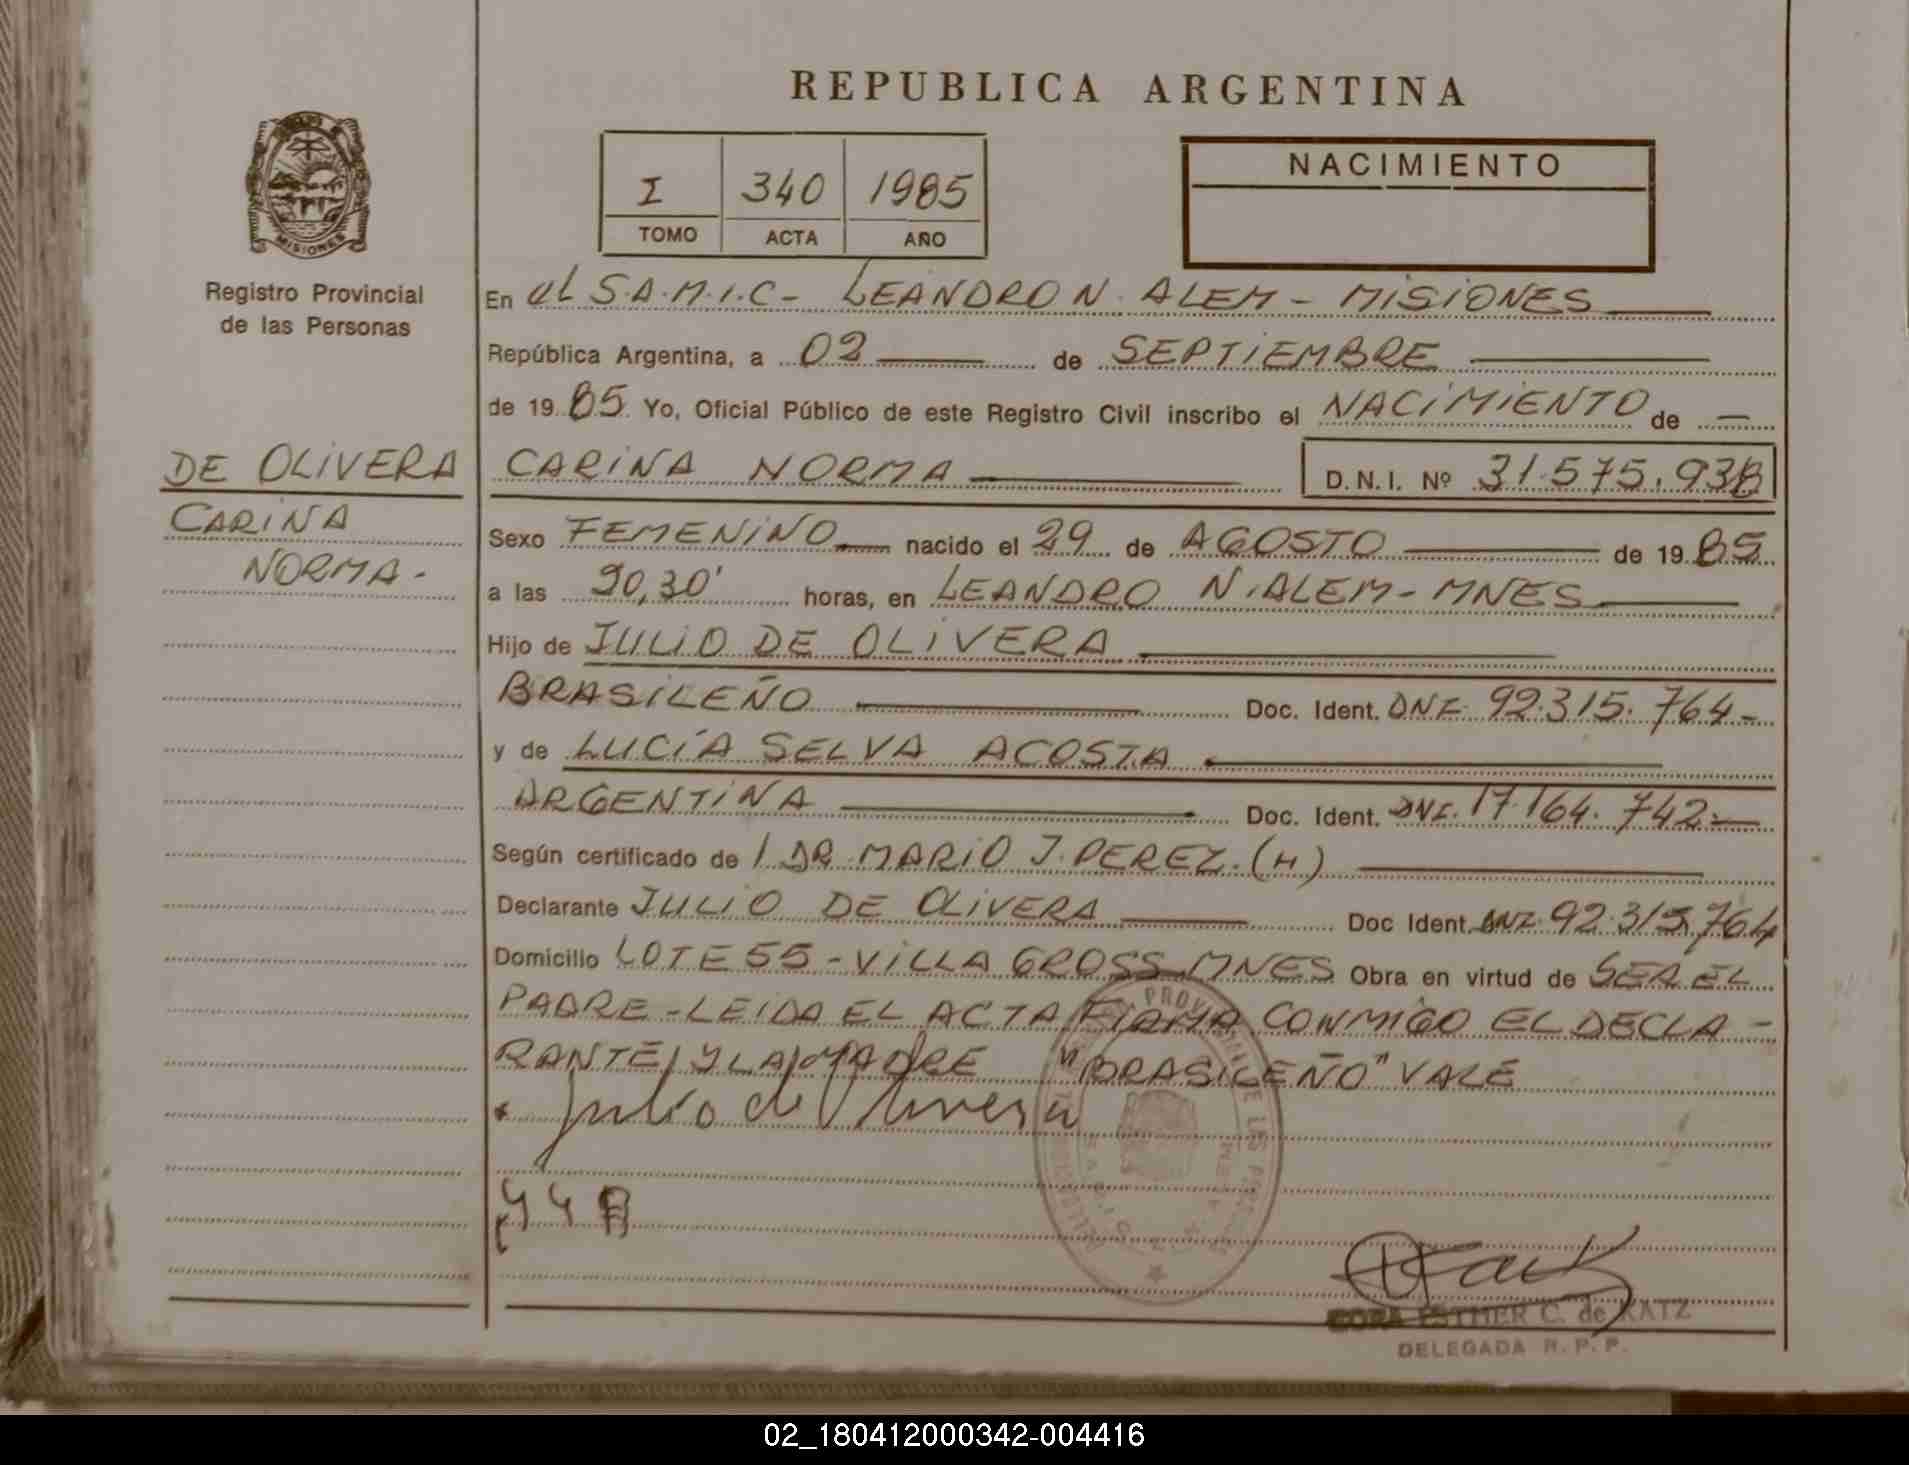 REPUBLICA ARGENTINA
MISIONES
Registro Provincial
de las Personas
I 340 1985
TOMO ACTA AÑO
NACIMIENTO
En el S.A.M.I.C- LEANDRO N. ALEM - MISIONES
República Argentina, a 02 de SEPTIEMBRE
de 1985 Yo, Oficial Público de este Registro Civil inscribo el NACIMIENTO de —
DE OLIVERA
CARINA
NORMA-
CARINA NORMA D.N.I. Nº 31.575.938
Sexo FEMENINO nacido el 29 de AGOSTO de 1985
a las 20,30' horas, en LEANDRO N. ALEM - MNES
Hijo de JULIO DE OLIVERA
BRASILEÑO Doc. Ident. DNI. 92.315.764-
y de LUCÍA SELVA ACOSTA
ARGENTINA Doc. Ident. DNI. 17.164.742-
Según certificado de / DR. MARIO J. PEREZ. (H)
Declarante JULIO DE OLIVERA Doc Ident. DNI. 92.315.764
Domicilio LOTE 55 - VILLA GROSS MNES Obra en virtud de SER EL
PADRE - LEIDA EL ACTA FIRMA CONMIGO EL DECLA-
RANTE / Y LA MADRE "BRASILEÑO" VALE
Julio de Olivera
CORA ESTHER C. de KATZ
DELEGADA R. P. P.
02_180412000342-004416